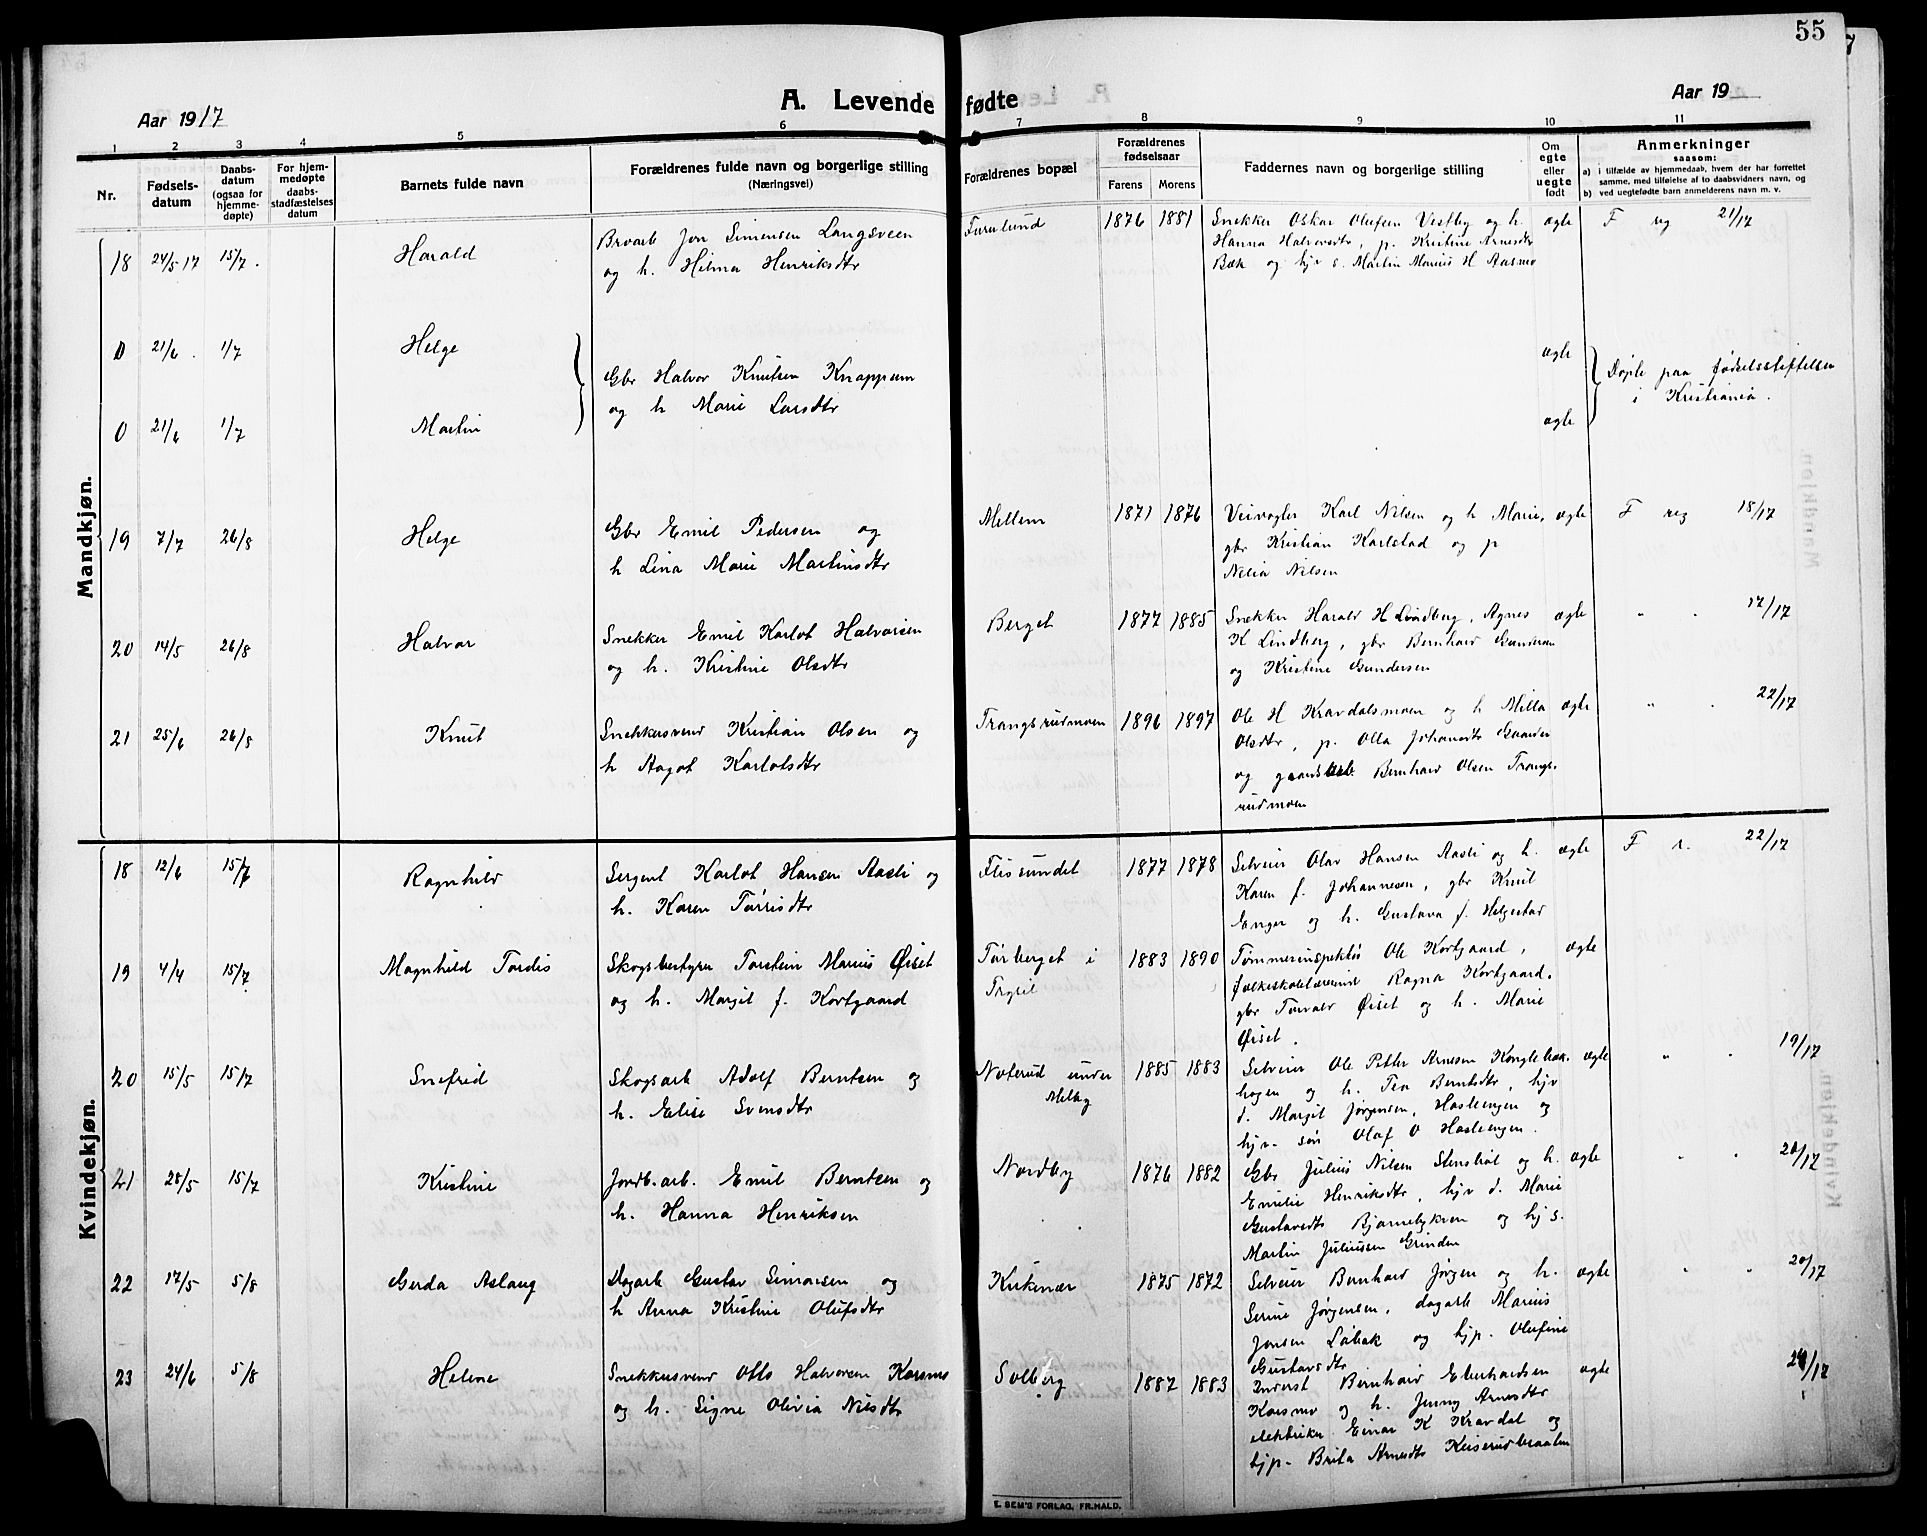 55
Aar 1917
A. Levende fødte
Aar 19
1 2 3 4 5 6 7 8 9 10 11
Nr.
Fødsels-
datum
Daabs-
datum
(ogsaa for
hjemme-
døpte)
For hjem-
medøpte
daabs-
stadfæstelses
datum
Barnets fulde navn
Forældrenes fulde navn og borgerlige stilling
(Næringsvei)
Forældrenes bopæl
Forældrenes
fødselsaar
Farens Morens
Faddernes navn og borgerlige stilling
Om
egte
eller
uegte
født
Anmerkninger
saasom:
a) i tilfælde av hjemmedaab, hvem der har forrettet
samme, med tilføielse af to daabsvidners navn, og
b) ved uegtefødte barn anmelderens navn m. v.
Mandkjøn.
18 24/5 17 15/7. Harald
Broarb Jon Simensen Langsveen
og h. Hilma Henriksdtr
Furulund 1876 1881
Snekker Oskar Olufsen Vestby og h.
Hanna Halvorsdtr, p. Kristine Arnesdtr
Bæk og hjv s. Martin Marius H Aasmo
ægte F reg 21/17
0 21/6. 1/7 Helge
Gbr Halvor Knutsen Knappum
og h Marie Larsdtr
ægte
Døpte paa fødselsstiftelsen
i Kristiania.
0 21/6 1/7 Martin
ægte
19 7/7 26/8 Helge
Gbr Emil Pedersen og
h Lina Marie Martinsdtr
Mellem 1871 1876
Veivogter Karl Nilsen og h Marie,
gbr Kristian Karlstad og p
Nelia Nilsen
ægte F reg 18/17
20 14/5 26/8 Halvor
Snekker Emil Karlot Halvorsen
og h. Kristine Olsdtr
Berget 1877 1885
Snekker Harald H Lindberg, Agnes
K Lindberg, gbr Bernhard Gundersen
og Kristine Gundersen
ægte " . 17/17
21 25/6 26/8 Knut
Snekkersvend Kristian Olsen og
h Aagot Karlotsdtr
Trangsrudmoen 1896 1897
Ole H Kravdalsmoen og h Milla
Olsdtr, p. Olla Johansdtr Gaarder
og gaardsarb Bernhard Olsen Trangs-
rudmoen
ægte " . 22/17
Kvindekjøn.
18 12/6 15/7 Ragnhild
Sergent Karlot Hansen Aasli og
h. Karen Tørrisdtr
Flissundet 1877 1878
Selveier Olav Hansen Aasli og h.
Karen f. Johannesen, gbr Knut
Enger og h. Gustava f. Helgestad
ægte F r. 22/17
19 4/4 15/7 Magnhild Tordis
Skogsbestyrer Torstein Marius Øiset
og h. Margit f. Kortgaard
Tørberget i
Trysil
1883 1890
Tømmerinspektør Ole Kortgaard,
folkeskolelærerinde Ragna Kortgaard,
gbr Torvald Øiset og h. Marie
Øiset.
ægte
20 15/5 15/7 Snefrid
Skogsarb Adolf Berntsen og
h. Elise Svensdtr
Noterud under
Melby
1885 1883
Selveier Ole Petter Arnesen Konglebæk-
hagen og h. Tea Berntsdtr, hjv
d. Margit Jørgensen, Hasleengen og
hjv. søn Olaf O Hasleengen.
ægte " . 19/17
21 28/5 15/7 Kristine
Jordb.arb. Emil Berntsen og
h. Hanna Henriksen
Nordby 1876 1882
Gbr Julius Nilsen Stensbøl og h.
Emilie Henriksdtr, hjv d. Marie
Gustavsdtr Bjørnebykven og hj s.
Martin Juliussen Grinden
ægte " " 20/17
22 17/5 5/8 Gerda Aslaug
Dagarb Gustav Simonsen og
h Anna Kristine Olufsdtr
Kirkenær 1875 1872
Selveier Bernhard Jørgen og h.
Serine Jørgensen, dagarb Marius
Jensen Løbak og hjp. Olufine
Gustavsdtr
ægte " " 20/17
23 24/6 5/8 Helene
Snekkersvend Otto Halvorsen Korsmo
og h. Signe Olivia Nilsdtr
Solberg 1887 1883
Inderst Bernhard Eberhardsen
Korsmo og h. Jenny Arnesdtr
elektriker Einar K Kravdal og
hjp. Brita Arnesdtr Keiserudbraaten
ægte 24/17
E. SEM'S FORLAG, FR.HALD.